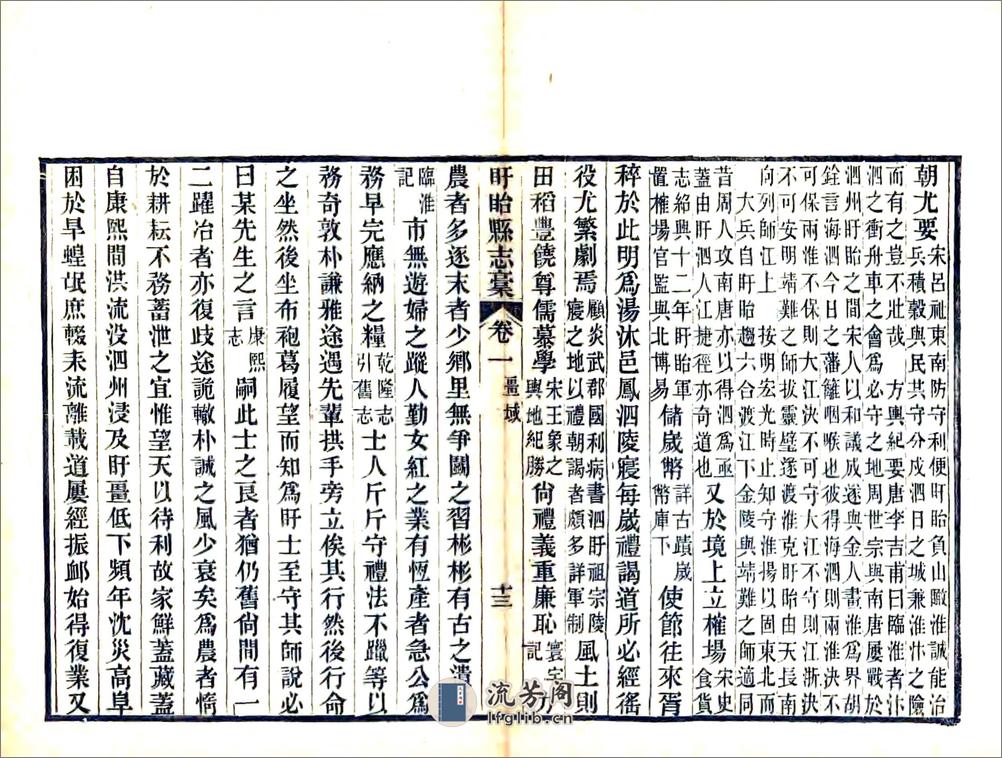 朝尤要宋呂祉東南防守利便盱眙負山瞰淮誠能治
兵積穀與民共守分戍泗日之城兼淮汴之險
而有之豈不壯哉　方輿紀要唐李吉甫曰臨淮者汴
泗之衝舟車之會爲必守之地周世宗與南唐屢戰於
泗州盱眙之間宋人以和議成遂與金人畫淮爲界胡
銓言海泗今日之藩籬咽喉也彼得海泗則兩淮決不
可保兩淮不保則大江決不可守大江不可守則江浙決
不可安明靖難之師拔靈璧遂渡淮克盱眙由天長南
向列師江上　按明宏光時止知守淮揚以固東北而
大兵自盱眙趨六合渡江下金陵與靖難之師適同
昔周人攻南唐亦以得泗爲亟
蓋由盱泗入江捷徑亦奇道也又於境上立榷場宋史食貨
志紹興十二年盱眙軍
置榷場官監與北博易儲歲幣詳古蹟歲幣庫下使節往來胥
稡於此明爲湯沐邑鳳泗陵寢每歲禮謁道所必經徭
役尤繁劇焉顧炎武郡國利病書泗盱祖宗陵
寢之地以禮朝謁者頗多詳軍制風土則
田稻豐饒尊儒慕學宋王象之輿地紀勝尙禮義重廉恥寰宇記
盱眙縣志稾　卷一　畺域　十三
農者多逐末者少鄉里無爭鬬之習彬彬有古之遺
臨淮記市無遊婦之蹤人勤女紅之業有恆產者急公爲
務早完應納之糧乾隆志引舊志士人斤斤守禮法不躐等以
務奇敦朴謙雅途遇先輩拱手旁立俟其行然後行命
之坐然後坐布袍葛履望而知爲盱士至守其師說必
曰某先生之言康熙志嗣此士之良者猶仍舊尙間有一
二躍冶者亦復歧途詭轍朴誠之風少衰矣爲農者惰
於耕耘不務蓄泄之宜惟望天以待利故家鮮蓋藏蓋
自康熙間洪流没泗州浸及盱畺低下頻年沈災高阜
困於旱蝗氓庶輟耒流離載道屢經振卹始得復業又
流芳阁
lfglib.cn